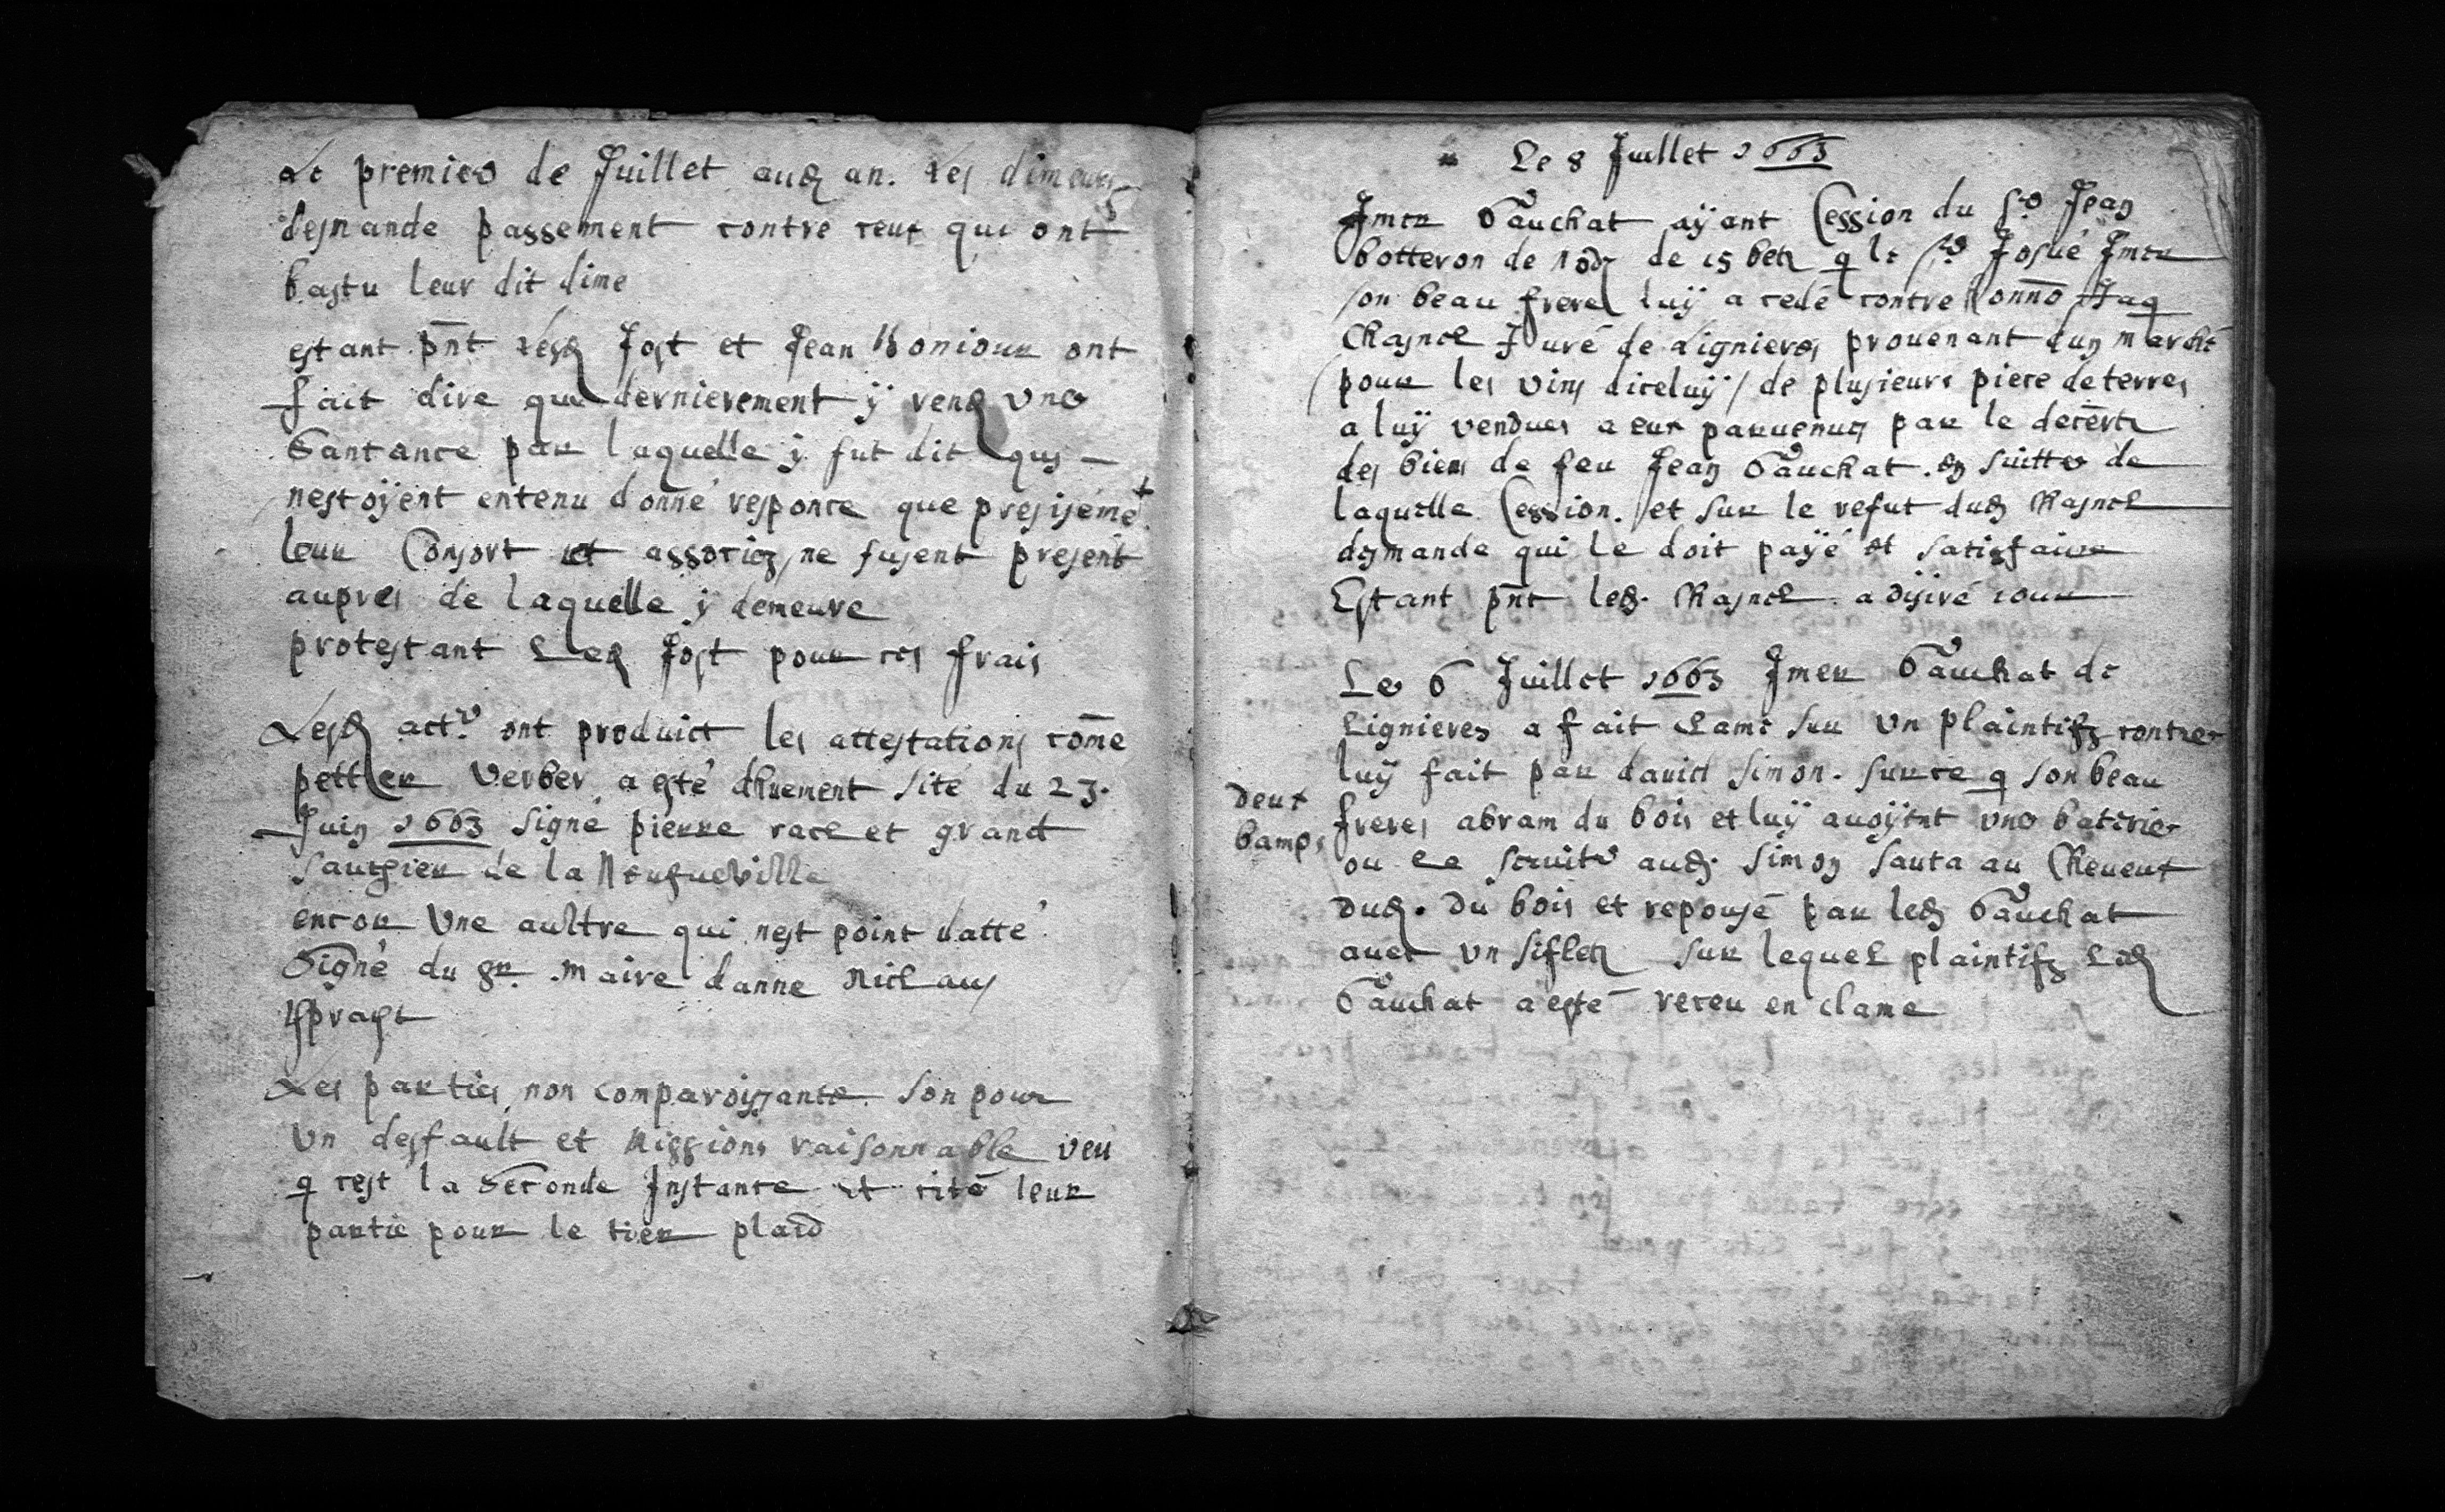 Le premier de Juillet aud an. Les dimeurs
desmande passement contre ceux qui ont
bastu leur dit dime
estant pñt lesd Jost et Jean Bonjour ont
fait dire que dernierement ÿ rend une
Santance par laquelle ÿ fut dit quy
nestoÿent entenu donné responce que presisemẽt
leur Consort et associez ne fusent present
aupres de laquelle ÿ demeure
protestant Led Jost pour ces frais
Lesd actr ont produict les attestations cõme
petter Verber a esté dhuement Sité du 23.
Juin 1663 Signé pierre race et grand
Sauthier de la Neufueville
encor Une aultre qui nest point datté
Signé du Sr. maire danne Niclaus
Spraht
Les parties non comparoissante Son pour
Un desfault et Missions raisonnable veu
q cest la Seconde Instance et cité leur
partie pour le tier plaid
Le 8 Juillet 1663
Imer Gauchat aÿant Cession du Sr Jean
botteron de Nods de 15 betz q le Sr Josué Imer
son beau frere luÿ a cedé contre honno Jaq
Chasnel Juré de Lignieres prouenant dun marché
pour les vins diceluÿ / de plusieurs piece de terres
a luÿ vendues a eux paruenus par le decerte
des biens de feu Jean Gauchat. en Suitte de
laquelle Cession. et Sur le refut dud Chasnel
desmande qui le doit paÿé et Satisfaire
Estant pñt led. Chasnel a disiré iour
Le 6 Juillet 1663 Imer Gauchat de
Lignieres a fait Clame Sur Un plaintifz contre
luÿ fait par david Simon. Surce q Son beau
deux
bamps
freres abram du bois et luÿ auoÿent une baterie
ou le Seruitr aud. Simon Sauta au Cheueux
dud. du bois et repousé par led Gauchat
auec un Sifletz Sur lequel plaintifz Led
Gauchat a esté receu en clame